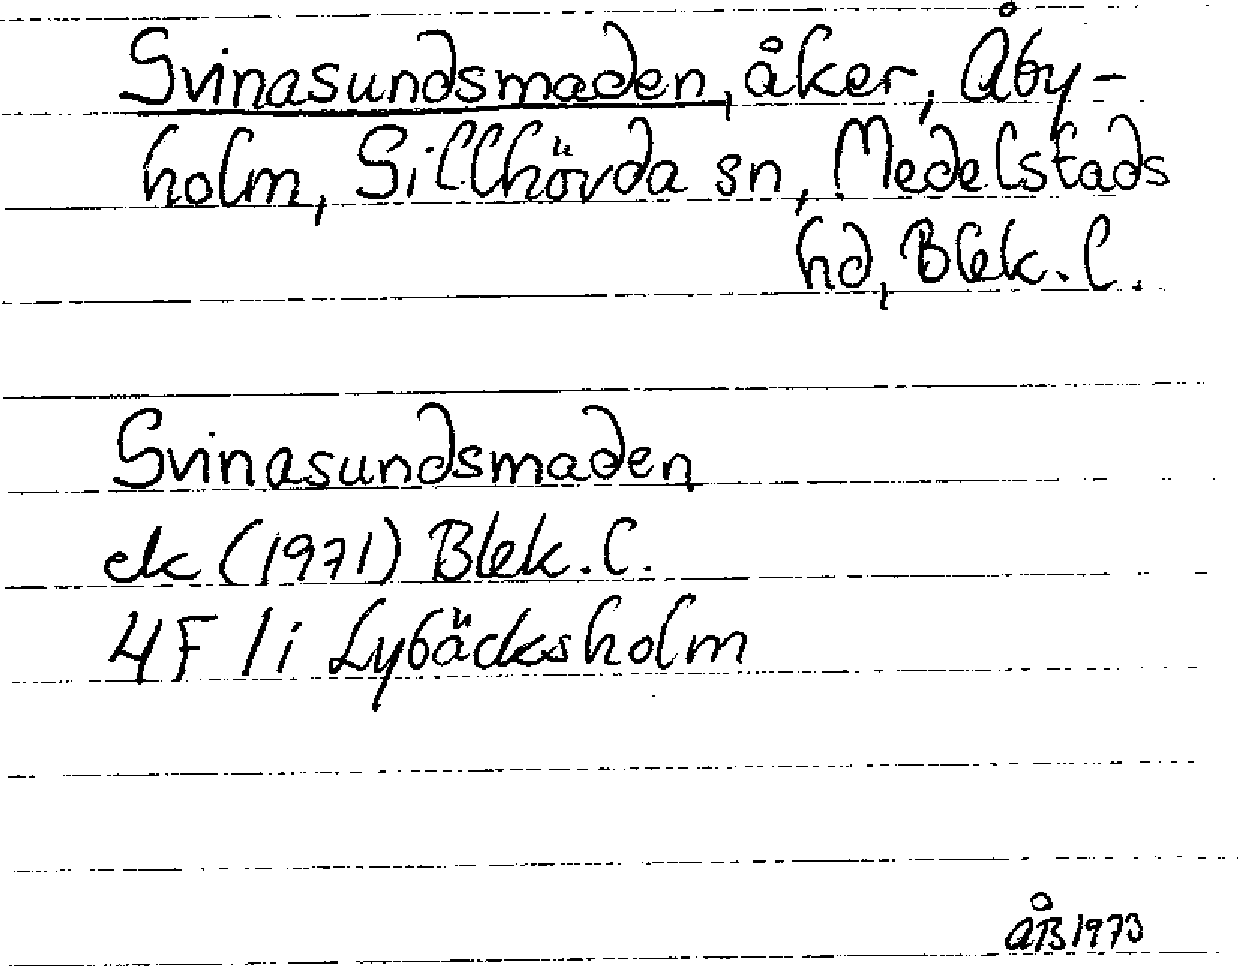 Svinasundsmaden, åker, Åby-
holm, Sillhövda sn, Medelstads
hd, Blek. l.
Svinasundsmaden
ek (1971) Blek. l.
4F 1i Lybäcksholm
ÅB 1973